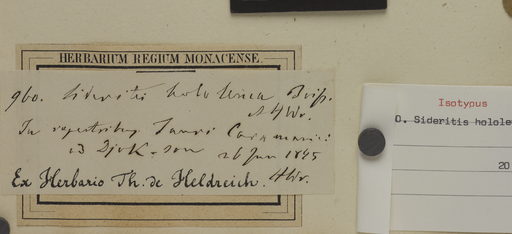 HERBARIUM REGIUM MONACENSE.
960. Sideritis hololeuca Boiss.
& Hdr.
In rupestribus Tauri
26 Jun 1845
Ex Herbario Th. de Heldreich.
Isotypus
O. Sideritis holole
20